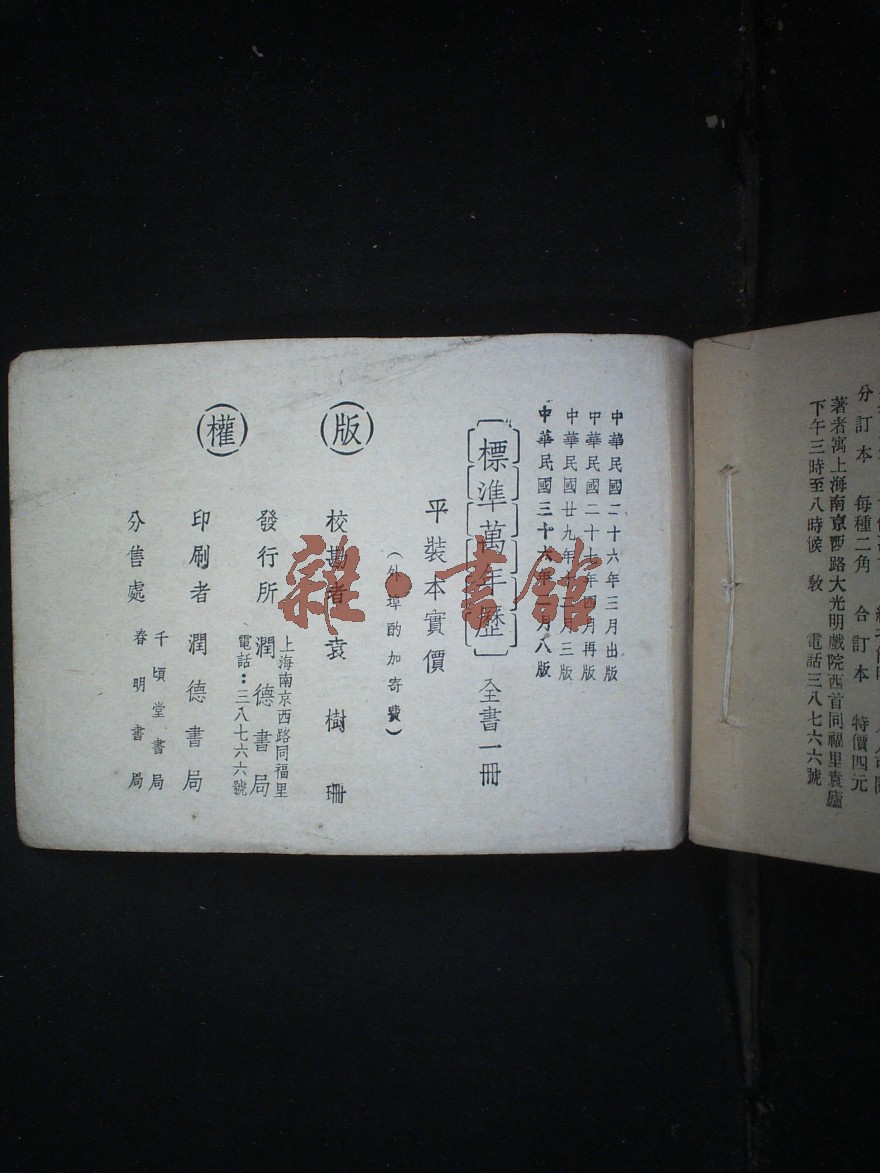 分訂本　每種二角　合訂本　特價四元
著者寓上海南京西路大光明戲院西首同福里袁廬
下午三時至八時候教　電話三八七六六號
中華民國二十六年三月出版
中華民國二十七年四月再版
中華民國廿九年十二月三版
中華民國三十六年　月八版
標準萬年歷　全書一冊
平裝本實價
（外埠酌加寄費）
版
校勘者　袁樹珊
上海南京西路同福里
發行所　潤德書局
電話：三八七六六號
權
印刷者　潤德書局
千頃堂書局
分售處
春明書局
雜·書館